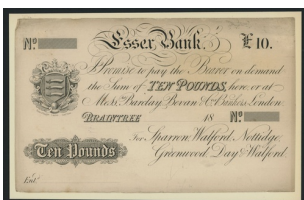 Nº Essex Bank. £10.
I Promise to pay the Bearer on demand
the Sum of TEN POUNDS, here, or at
Messrs. Barclay, Bevan & Co. Bankers London
BRAINTREE 18 Nº
For Sparrow, Walford, Nottidge,
Greenwood, Day & Walford.
Ten Pounds
Entd.